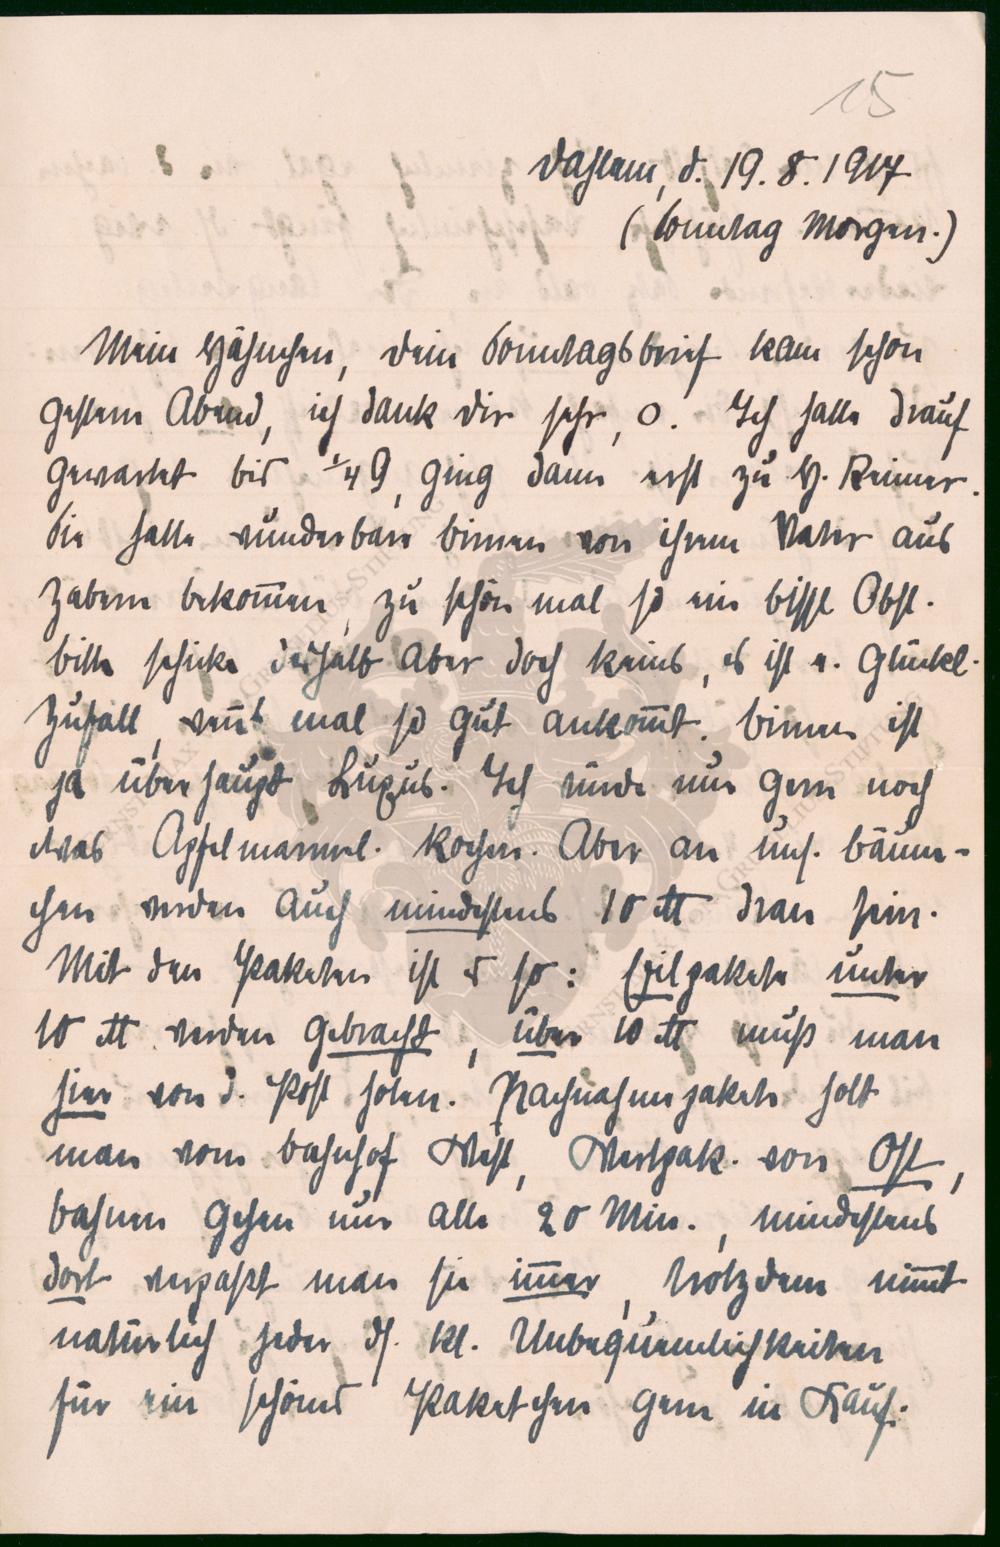 15
Dahlem, d. 19. 8. 1917
(Sonntag Morgen.)
Mein Hähnchen, dein Sonntagsbrief kam schon
gestern Abend, ich dank dir sehr, o. Ich hatte drauf
gewartet bis 1/4 9, ging dann erst zu H. Reimer.
Sie hatte wunderbare Birnen von ihrem Vater aus
Zabern bekom̅en, zu schön mal so ein bissl Obst.
Bitte schicke deshalb aber doch keins, es ist e. Glückl.
Zufall, wen̅s mal so gut ankom̅t. Birnen ist
ja überhaupt Luxus. Ich würde nur gern noch
etwas Apfelmarmel. kochen. Aber an uns. Bäum-
chen werden auch mindestens 10 ℔ dran sein.
Mit den Paketen ist es so: Eilpakete unter
10 ℔ werden gebracht, über 10 ℔ muß man
hier von d. Post holen. Nachnahmepakete holt
man vom Bahnhof West, Wertpak. von Ost,
Bahnen gehen nur alle 20 Min., mindestens
dort verpaßt man sie im̅er, trotzdem nim̅t
natürlich jeder ds. kl. Unbequemlichkeiten
für ein schönes Paketchen gern in Kauf.